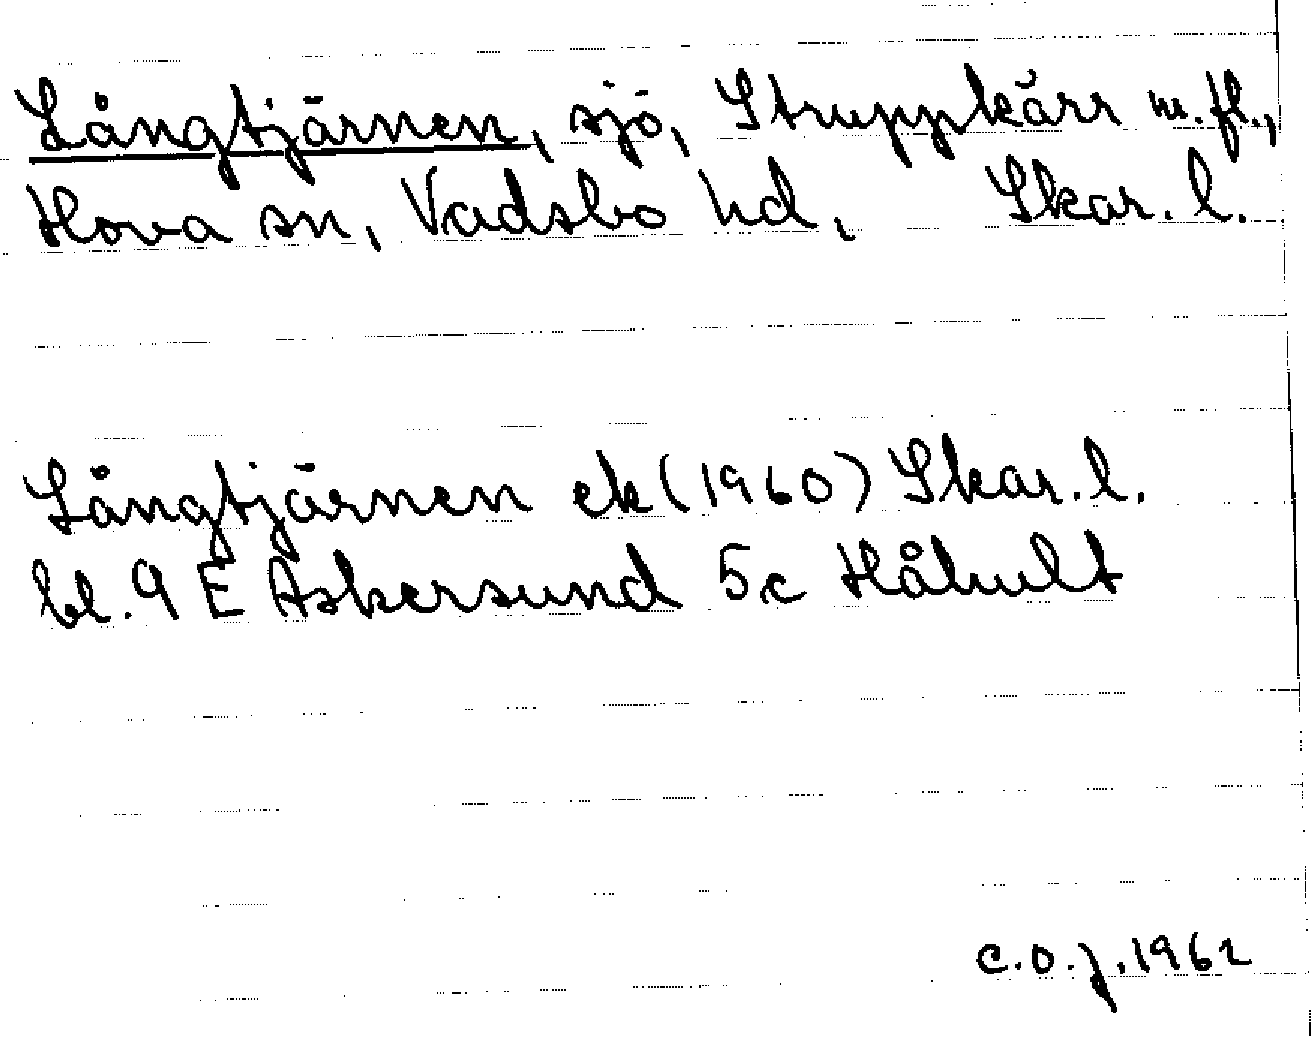 Långtjärnen, sjö, Struppkärr m. fl.,
Hova sn, Vadsbo hd, Skar. l.
Långtjärnen ek (1960) Skar. l.
bl. 9 E Askersund 5c Håhult
C.O.J. 1962